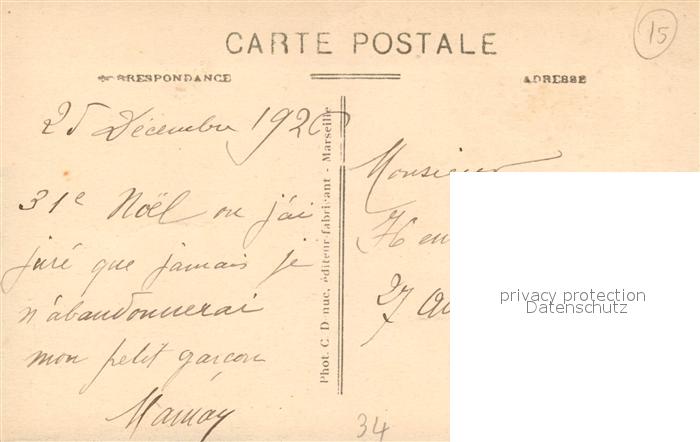 CARTE POSTALE
15
CORRESPONDANCE
ADRESSE
25 Décembre 1920
31e Noël ou j'ai
juré que jamais je
n'abandonnerai
mon petit garçon
Phot. C. D nuc, éditeur-fabricant - Marseille
Monsieur
27
34
privacy protection
Datenschutz